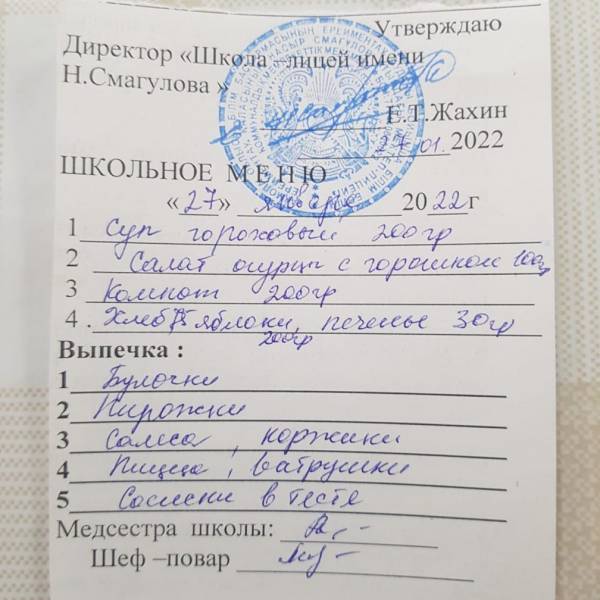 Утверждаю
Директор «Школа –лицей имени
Н.Смагулова »
Е.Т.Жахин
27.01.2022
ШКОЛЬНОЕ МЕНЮ
«27» января 2022г
1 Суп гороховый 200гр
2 Салат огурцы с горошком 100гр
3 Компот 200гр
4 . Хлеб 75 яблоки, печенье 30гр
200гр
Выпечка :
1 Булочки
2 Пирожки
3 Самса , коржики
4 Пицца , ватрушки
5 Сосиски в тесте
Медсестра школы:
Шеф –повар